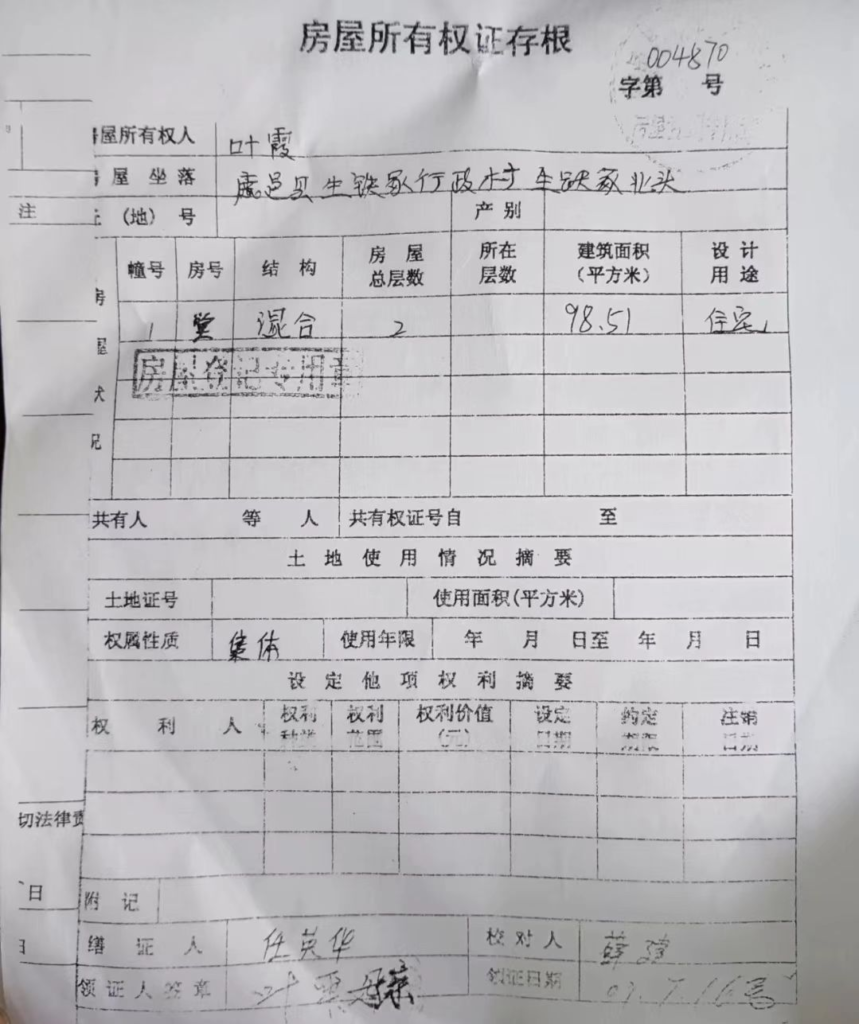 房屋所有权证存根
004870
字第 号
房屋所有权人 叶霞
房屋坐落 鹿邑县生铁冢行政村生铁冢北头
(地) 号 产别
注
幢号 房号 结构 房屋总层数 所在层数 建筑面积(平方米) 设计用途
房屋状况
1 混合 2 98.51 住宅
房屋登记专用章
共有人 等 人 共有权证号自 至
土地使用情况摘要
土地证号 使用面积(平方米)
权属性质 集体 使用年限 年 月 日至 年 月 日
设定他项权利摘要
权利人 权利种类 权利范围 权利价值(元) 设定日期 约定期限 注销日期
切法律责
日
附记
缮证人 任英华 校对人 薛
领证人签章 叶霞 领证日期 07.7.16